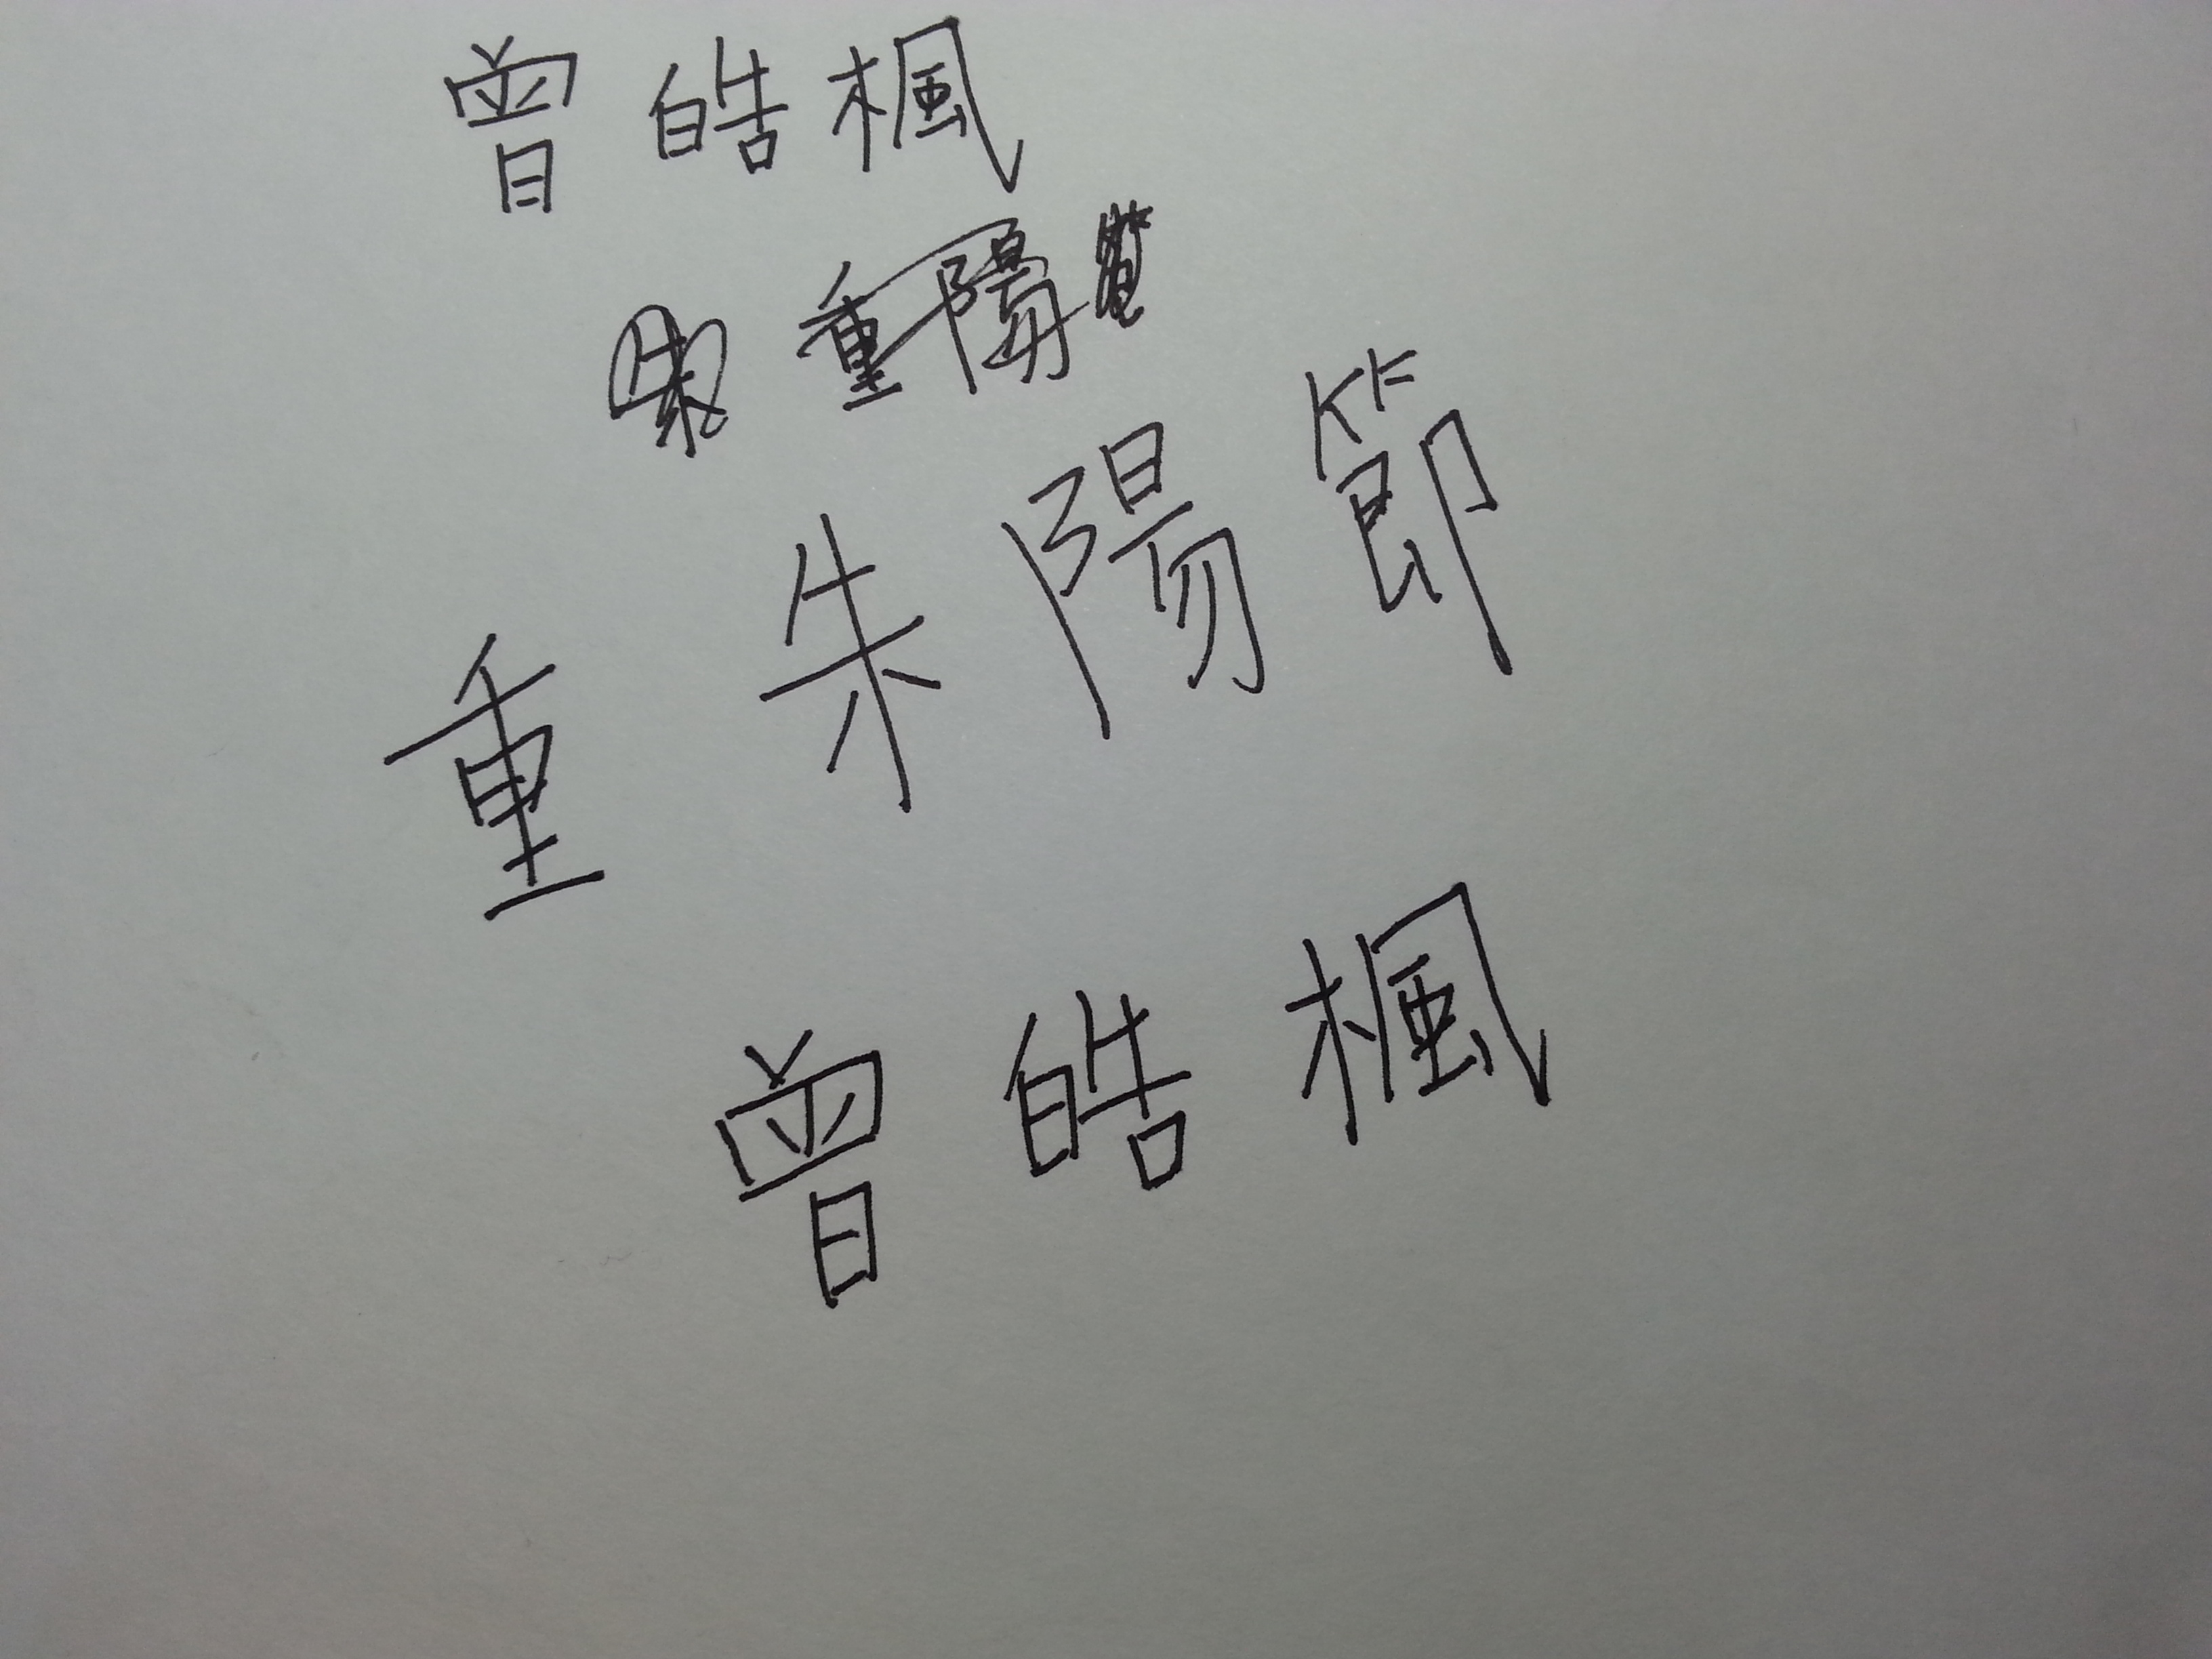 曾皓楓
重陽
重朱陽節
曾皓楓